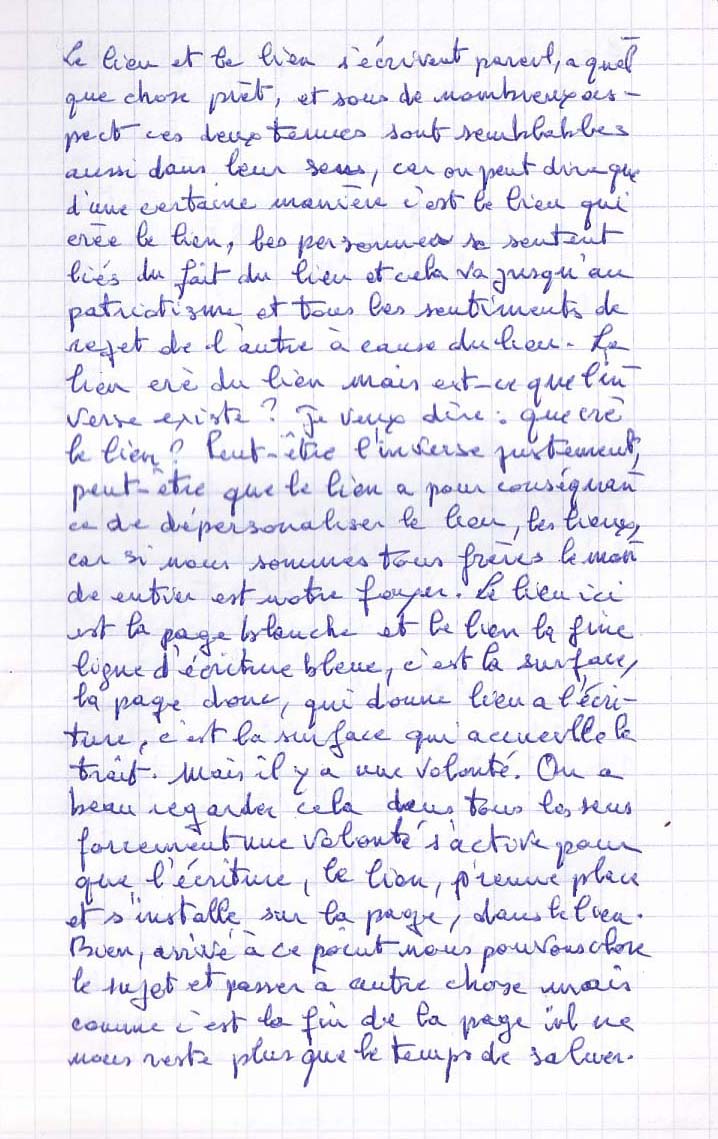 Le lieu et le lien s'écrivent pareil, a quel
que chose prêt, et sous de nombreux as-
pect ces deux termes sont semblables
aussi dans leur sens, car on peut dire que
d'une certaine manière c'est le lieu qui
crée le lien, les personnes se sentent
liés du fait du lieu et cela va jusqu'au
patriotisme et tous les sentiments de
rejet de l'autre à cause du lieu. Le
lieu crè du lien mais est-ce que l'in
verse existe? Je veux dire : que crè
le lien? Peut-être l'inverse justement,
peut-être que le lien a pour conséquan
ce de dépersonaliser le lieu, les lieux,
car si nous sommes tous frères le mon
de entier est notre foyer. Le lieu ici
est la page blanche et le lien la fine
ligne d'écriture bleue, c'est la surface,
la page donc, qui donne lieu a l'écri-
ture, c'est la surface qui accueille le
trait. Mais il y a une volonté. On a
beau regarder cela dans tous les sens
forcement une volonté s'active pour
que l'écriture, le lien, prenne place
et s'installe sur la page, dans le lieu.
Bien, arrivé à ce point nous pouvons clore
le sujet et passer à autre chose mais
comme c'est la fin de la page il ne
nous reste plus que le temps de saluer.